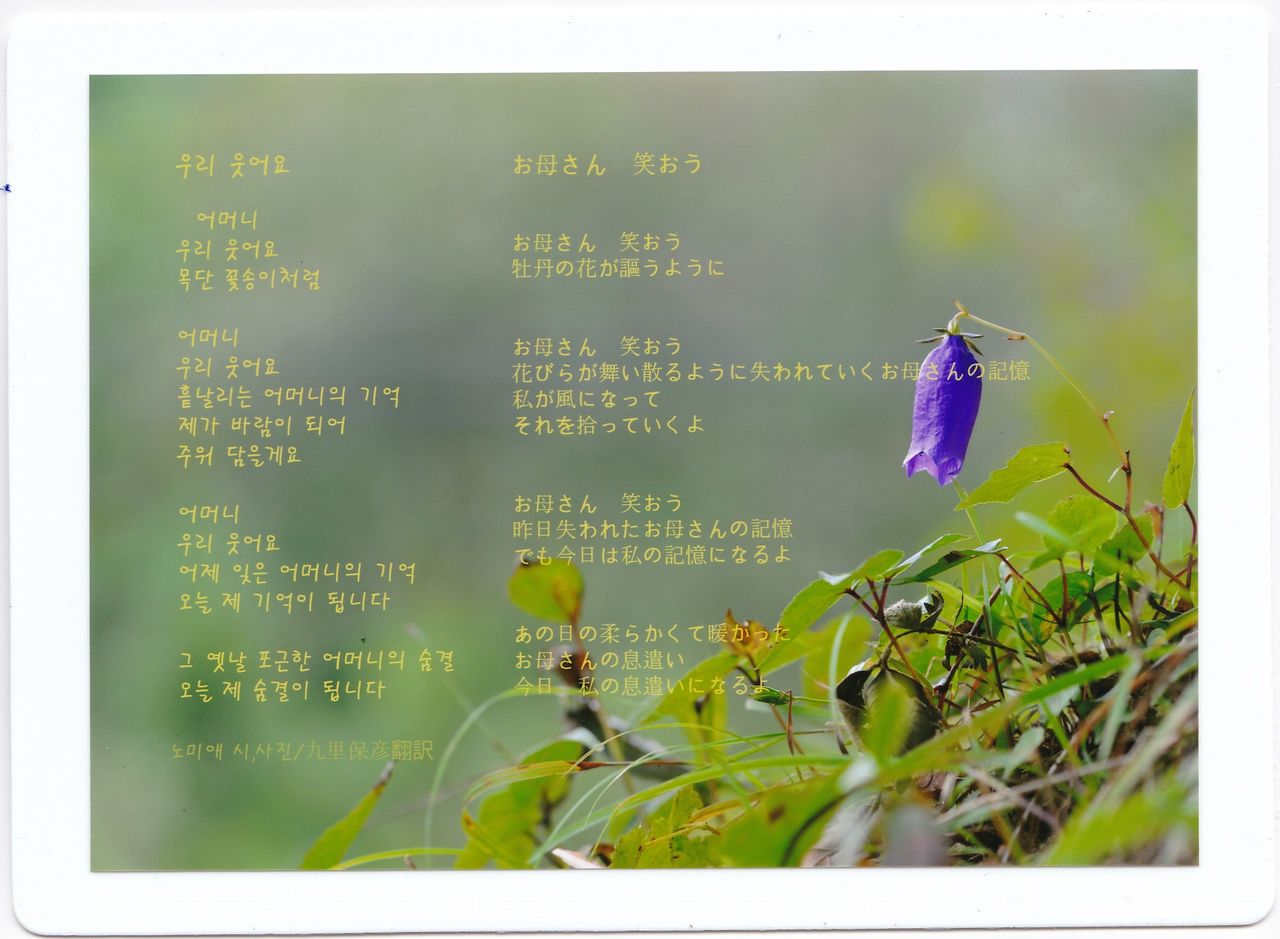 우리 웃어요
어머니
우리 웃어요
목단 꽃송이처럼
어머니
우리 웃어요
흩날리는 어머니의 기억
제가 바람이 되어
주워 담을게요
어머니
우리 웃어요
어제 잊은 어머니의 기억
오늘 제 기억이 됩니다
그 옛날 포근한 어머니의 숨결
오늘 제 숨결이 됩니다
노미애 시,사진/九里保彦翻訳
お母さん　笑おう
お母さん　笑おう
牡丹の花が謳うように
お母さん　笑おう
花びらが舞い散るように失われていくお母さんの記憶
私が風になって
それを拾っていくよ
お母さん　笑おう
昨日失われたお母さんの記憶
でも今日は私の記憶になるよ
あの日の柔らかくて暖かった
お母さんの息遣い
今日　私の息遣いになるよ